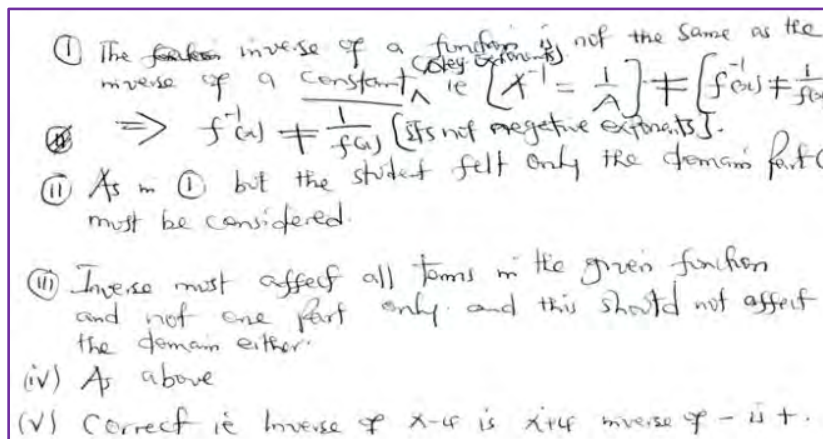 (i) The inverse of a function is not the same as the
inverse of a constant (obey exponents) ie [A⁻¹ = 1/A] ≠ [f⁻¹(x) ≠ 1/f(x)
⇒ f⁻¹(x) ≠ 1/f(x) [its not negetive exponents].
(ii) As in (i) but the student felt only the domain part (
must be considered.
(iii) Inverse must affect all terms in the given function
and not one part only. and this should not affect
the domain either.
(iv) As above
(v) Correct ie Inverse of x-4 is x+4 inverse of - is +.